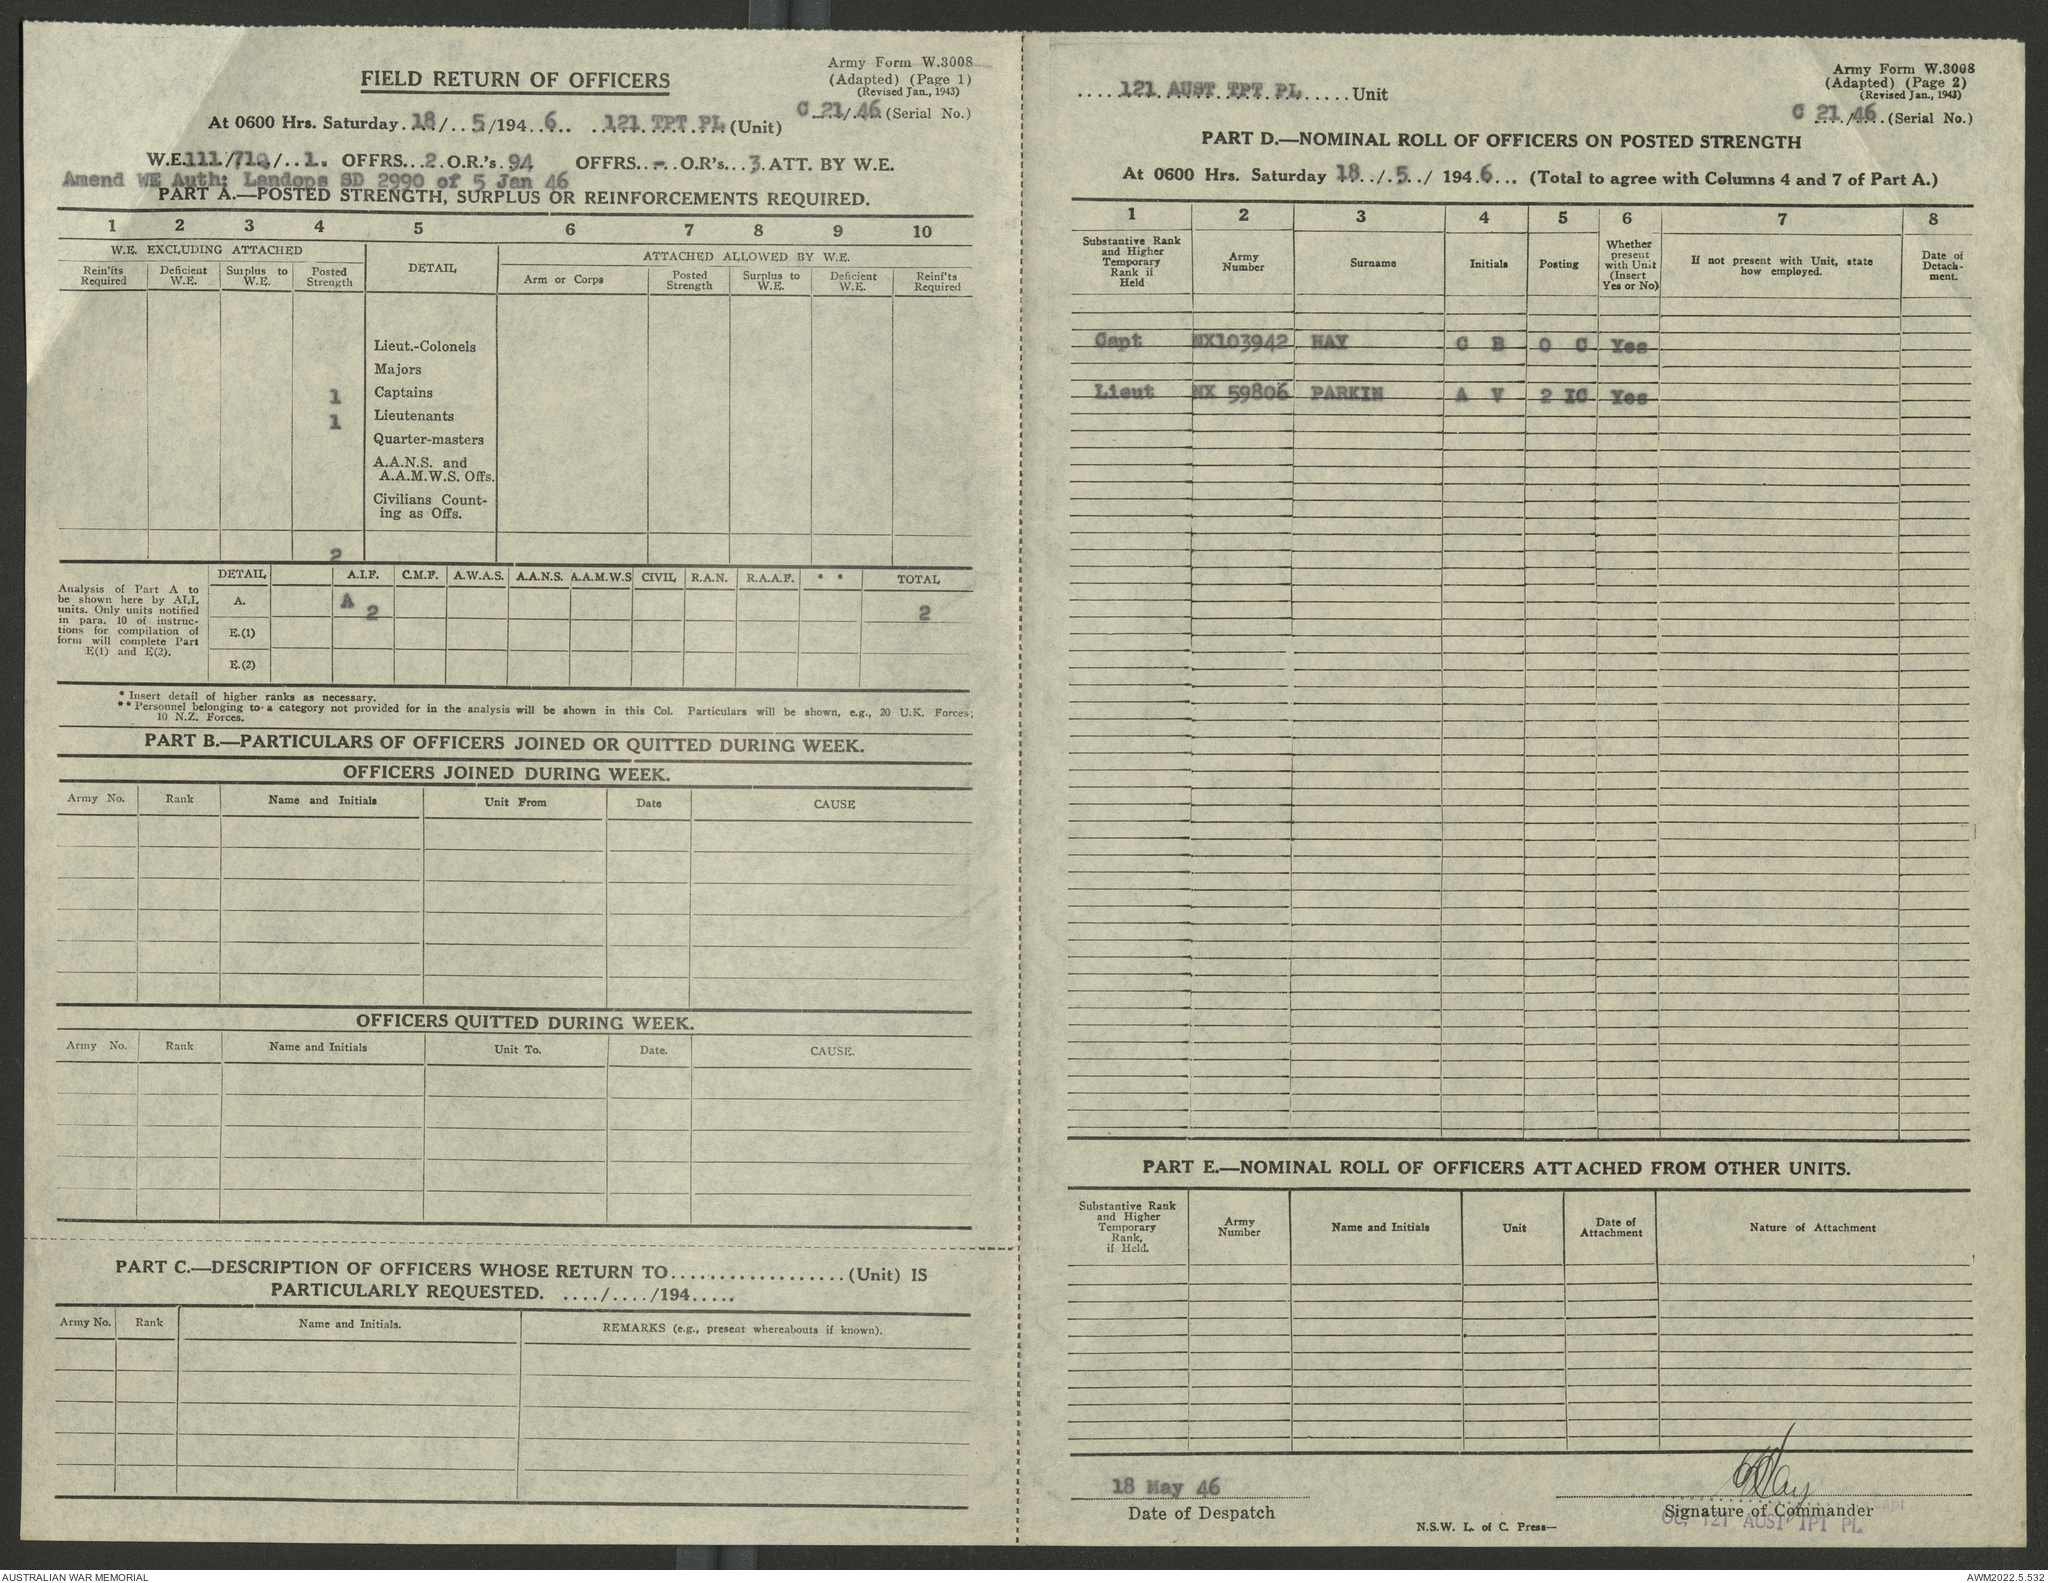 Army Form W.3008
(Adapted) (Page 1)
(Revised Jan., 1943)
FIELD RETURN OF OFFICERS
C 21/46 (Serial No.)
At 0600 Hrs. Saturday 18/5/1946 121 TPT PL (Unit)
W.E. 111/710/1. OFFRS. 2 O.R.'s 94 OFFRS. - O.R's 3 ATT. BY W.E.
Amend WE Auth: Landops SD 2990 of 5 Jan 46
PART A.—POSTED STRENGTH, SURPLUS OR REINFORCEMENTS REQUIRED.
1 2 3 4 5 6 7 8 9 10
W.E. EXCLUDING ATTACHED DETAIL ATTACHED ALLOWED BY W.E.
Rein'its Required Deficient W.E. Surplus to W.E. Posted Strength Arm or Corps Posted Strength Surplus to W.E. Deficient W.E. Reinf'ts Required
Lieut.-Colonels
Majors
1 Captains
1 Lieutenants
Quarter-masters
A.A.N.S. and
A.A.M.W.S. Offs.
Civilians Count-
ing as Offs.
2
Analysis of Part A to
be shown here by ALL
units. Only units notified
in para. 10 of instruc-
tions for compilation of
form will complete Part
E(1) and E(2).
DETAIL A.I.F. C.M.F. A.W.A.S. A.A.N.S. A.A.M.W.S CIVIL R.A.N. R.A.A.F. * * TOTAL
A. A 2 2
E.(1)
E.(2)
* Insert detail of higher ranks as necessary.
** Personnel belonging to a category not provided for in the analysis will be shown in this Col. Particulars will be shown, e.g., 20 U.K. Forces;
10 N.Z. Forces.
PART B.—PARTICULARS OF OFFICERS JOINED OR QUITTED DURING WEEK.
OFFICERS JOINED DURING WEEK.
Army No. Rank Name and Initials Unit From Date CAUSE
OFFICERS QUITTED DURING WEEK.
Army No. Rank Name and Initials Unit To. Date. CAUSE.
PART C.—DESCRIPTION OF OFFICERS WHOSE RETURN TO................... (Unit) IS
PARTICULARLY REQUESTED. ..../..../194.....
Army No. Rank Name and Initials. REMARKS (e.g., present whereabouts if known).
Army Form W.3008
(Adapted) (Page 2)
(Revised Jan., 1943)
121 AUST TPT PL Unit
C 21/46 (Serial No.)
PART D.—NOMINAL ROLL OF OFFICERS ON POSTED STRENGTH
At 0600 Hrs. Saturday 18/5/1946 (Total to agree with Columns 4 and 7 of Part A.)
1 2 3 4 5 6 7 8
Substantive Rank and Higher Temporary Rank if Held Army Number Surname Initials Posting Whether present with Unit (Insert Yes or No) If not present with Unit, state how employed. Date of Detach-ment.
Capt NX103942 HAY C B O C Yes
Lieut NX 59806 PARKIN A V 2 IC Yes
PART E.—NOMINAL ROLL OF OFFICERS ATTACHED FROM OTHER UNITS.
Substantive Rank and Higher Temporary Rank, if Held. Army Number Name and Initials Unit Date of Attachment Nature of Attachment
18 May 46
Date of Despatch
CBHay
Capt
Signature of Commander
OC, 121 AUST TPT PL
N.S.W. L. of C. Press—
AUSTRALIAN WAR MEMORIAL
AWM2022.5.532